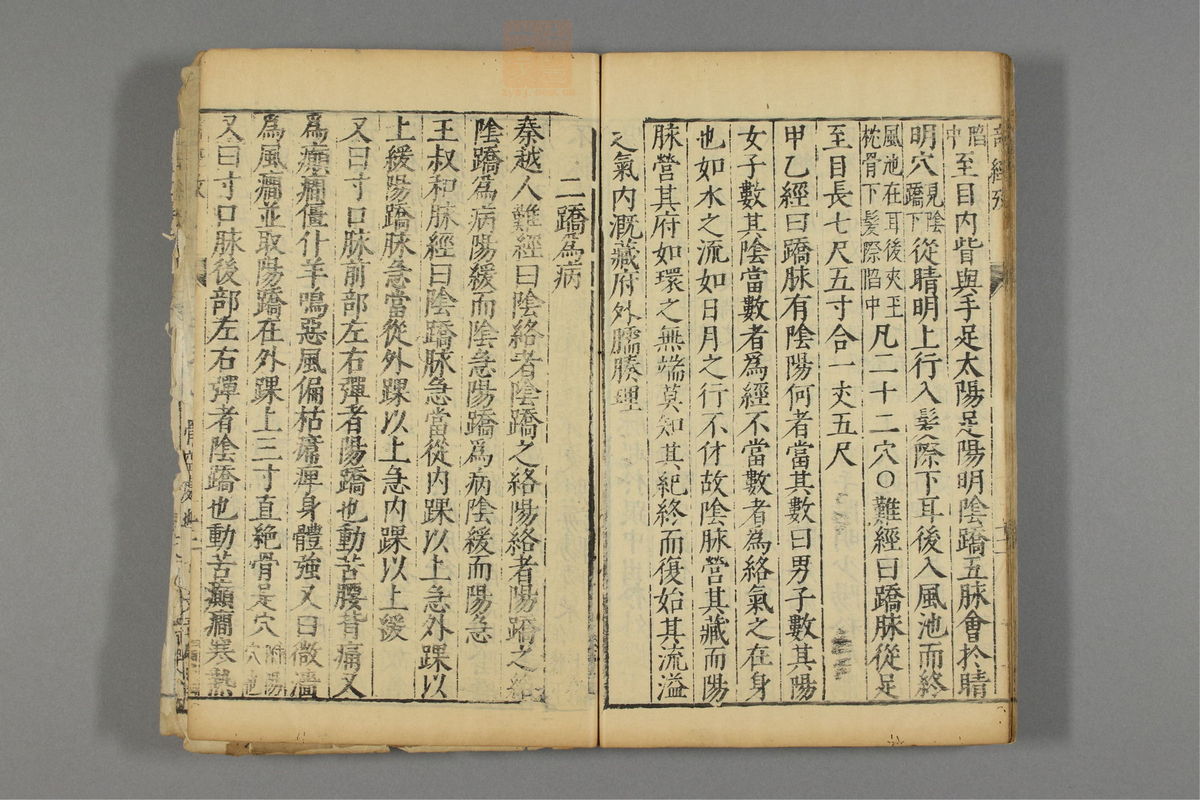 陷中至目内眥與手足太陽足陽明陰蹻五脉會於睛
明穴見陰蹻下從睛明上行入髮際下耳後入風池而終
風池在耳後夾玉枕骨下髮際陷中凡二十二穴〇難經曰蹻脉從足
至目長七尺五寸合一丈五尺
甲乙經曰蹻脉有陰陽何者當其數曰男子數其陽
女子數其陰當數者爲經不當數者爲絡氣之在身
也如水之流如日月之行不休故陰脉營其藏而陽
脉營其府如環之無端莫知其紀終而復始其流溢
之氣内溉藏府外濡腠理
二蹻爲病
秦越人難經曰陰絡者陰蹻之絡陽絡者陽蹻之絡
陰蹻爲病陽緩而陰急陽蹻爲病陰緩而陽急
王叔和脉經曰陰蹻脉急當從内踝以上急外踝以
上緩陽蹻脉急當從外踝以上急内踝以上緩
又曰寸口脉前部左右彈者陽蹻也動苦腰背痛又
爲癲癇僵仆羊鳴惡風偏枯㿏痺身體強又曰微濇
爲風癇並取陽蹻在外踝上三寸直絶骨是穴附陽穴也
又曰寸口脉後部左右彈者陰蹻也動苦癲癇寒熱